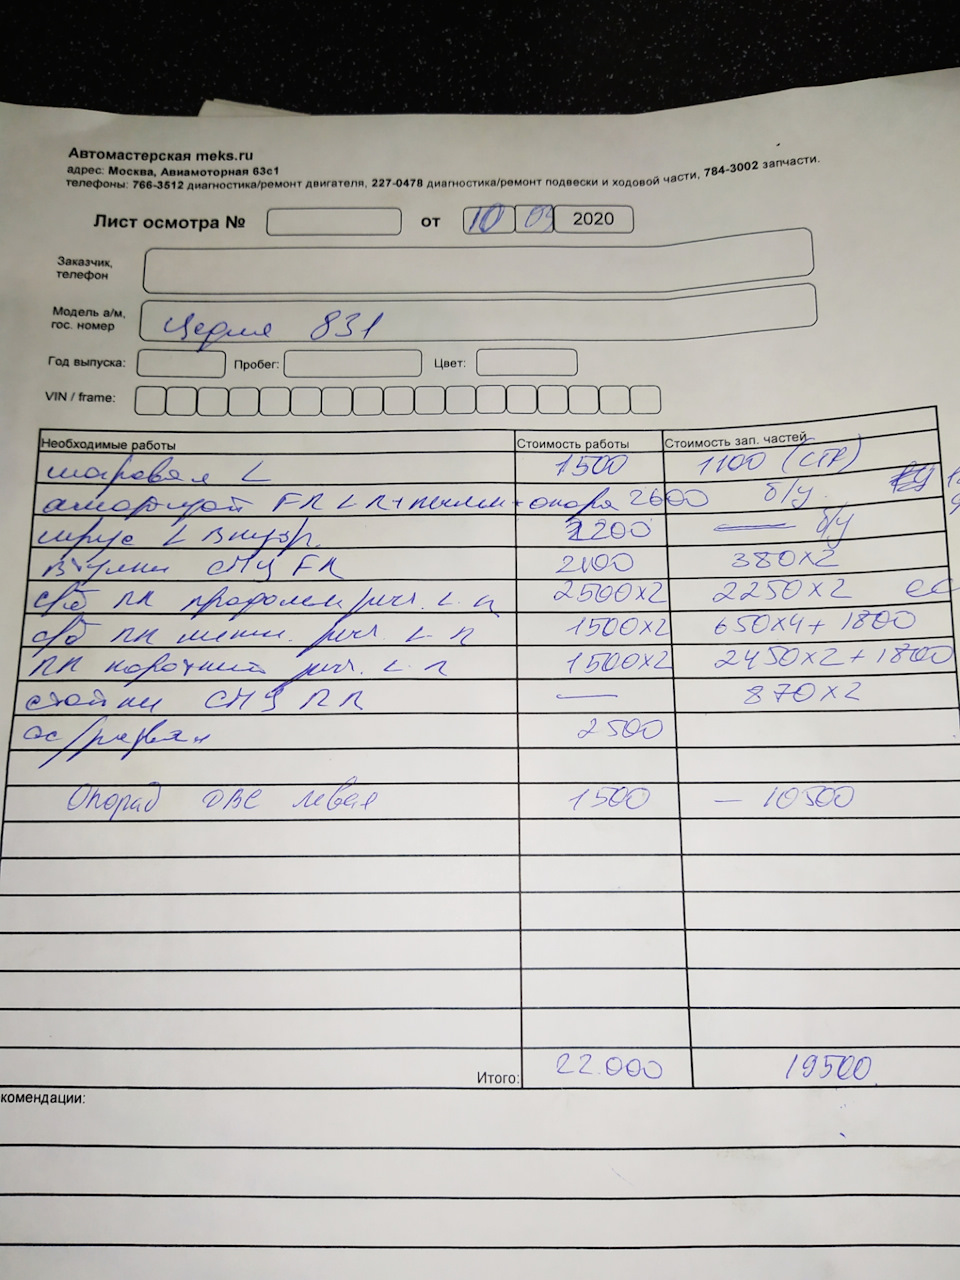 Автомастерская meks.ru
адрес: Москва, Авиамоторная 63с1
телефоны: 766-3512 диагностика/ремонт двигателя, 227-0478 диагностика/ремонт подвески и ходовой части, 784-3002 запчасти.
Лист осмотра № от 10 09 2020
Заказчик,
телефон
Модель а/м,
гос. номер
831
Год выпуска: Пробег: Цвет:
VIN / frame:
Необходимые работы Стоимость работы Стоимость зап. частей
шаровая L 1500 1100 (СТР)
FR L R + опора 2600 б/у
шрус L внутр. 2200 б/у
втулки СПУ FR 2100 380х2
с/б ПК рыч. L 2500х2 2250х2
с/б ПК рыч. L 1500х2 650х4 + 1800
ПК рыч. L 1500х2 2450х2 + 1800
стойки СПУ 870х2
2500
Опора ДВС левая 1500 – 10500
Итого: 22.000 19500
комендации: